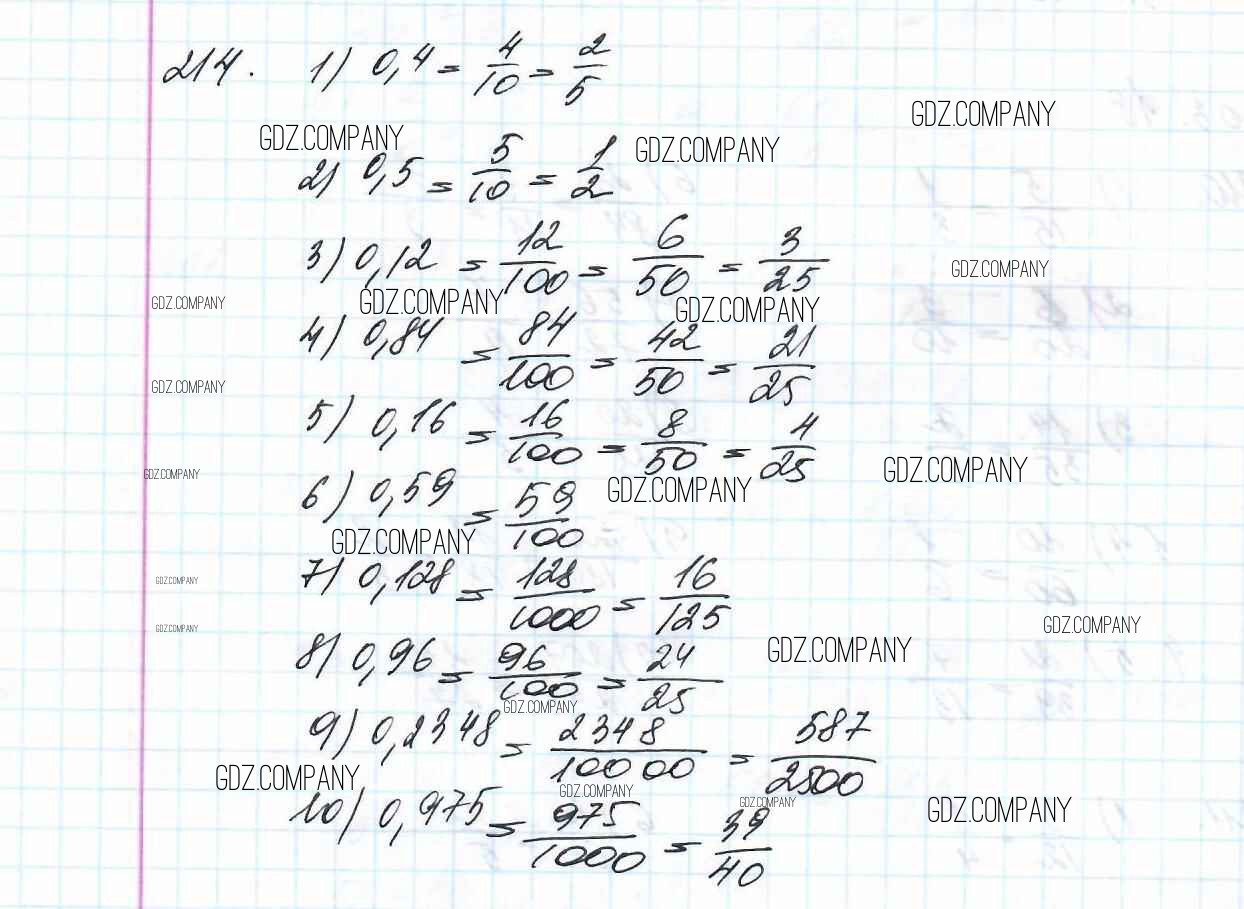 214. 1) 0,4 = 4/10 = 2/5
GDZ.COMPANY
GDZ.COMPANY GDZ.COMPANY
2) 0,5 = 5/10 = 1/2
3) 0,12 = 12/100 = 6/50 = 3/25
GDZ.COMPANY
GDZ.COMPANY GDZ.COMPANY GDZ.COMPANY
4) 0,84 = 84/100 = 42/50 = 21/25
GDZ.COMPANY
5) 0,16 = 16/100 = 8/50 = 4/25
GDZ.COMPANY GDZ.COMPANY
6) 0,59 = 59/100
GDZ.COMPANY
GDZ.COMPANY
7) 0,128 = 128/1000 = 16/125
GDZ.COMPANY
GDZ.COMPANY GDZ.COMPANY
8) 0,96 = 96/100 = 24/25
GDZ.COMPANY
GDZ.COMPANY
9) 0,2348 = 2348/10000 = 587/2500
GDZ.COMPANY GDZ.COMPANY
10) 0,975 = 975/1000 = 39/40
GDZ.COMPANY GDZ.COMPANY